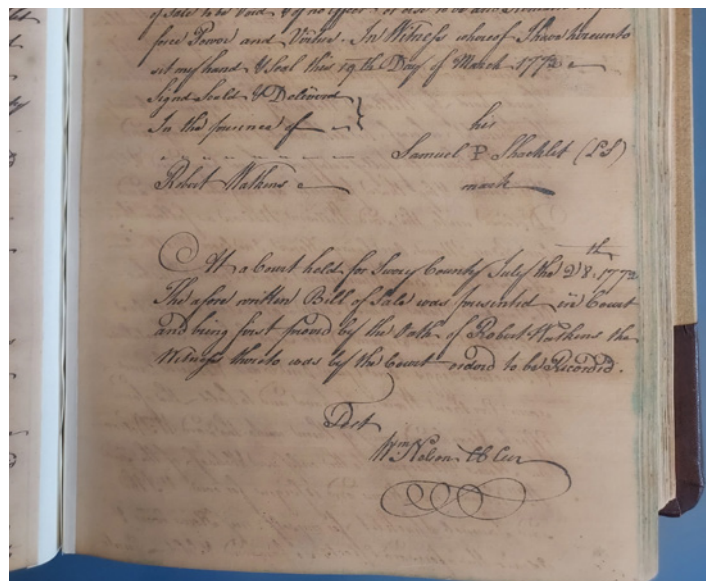 of Sale to be Void & of no Effect or else to be and
force Power and Virtue. In Witness whereof I have hereunto
set my hand & Seal this 19th Day of March 1772
Signd Seald & Deliverd
In the presence of
his
Samuel P Shacklet (LS)
Robert Watkins
mark
At a Court held for Surry County July the 28th 1772
The afore written Bill of Sale was presented in Court
and being first proved by the Oath of Robert Watkins the
Witness thereto was by the Court ordord to be Recorded.
Test
Wm Nelson Cl Cur